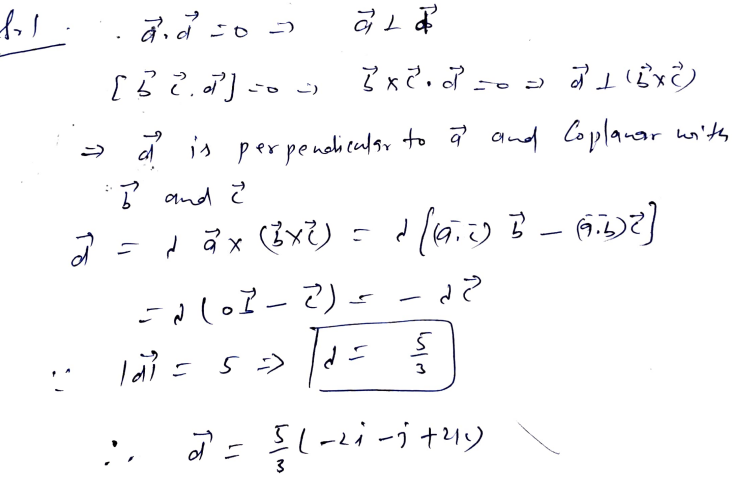 a⃗.d⃗ = 0 ⇒ a⃗ ⊥ d⃗
[b⃗ c⃗. d⃗] = 0 ⇒ b⃗ × c⃗ . d⃗ = 0 ⇒ d⃗ ⊥ (b⃗×c⃗)
⇒ d⃗ is perpendicular to a⃗ and Coplanar with
b⃗ and c⃗
d⃗ = λ a⃗ × (b⃗×c⃗) = λ [(a̅.c̅) b⃗ – (a̅.b̅)c⃗]
= λ (0b⃗ – c⃗) = – λc⃗
∵ |d⃗| = 5 ⇒ λ = 5/3
∴ d⃗ = 5/3 (-2i - j + 2k)